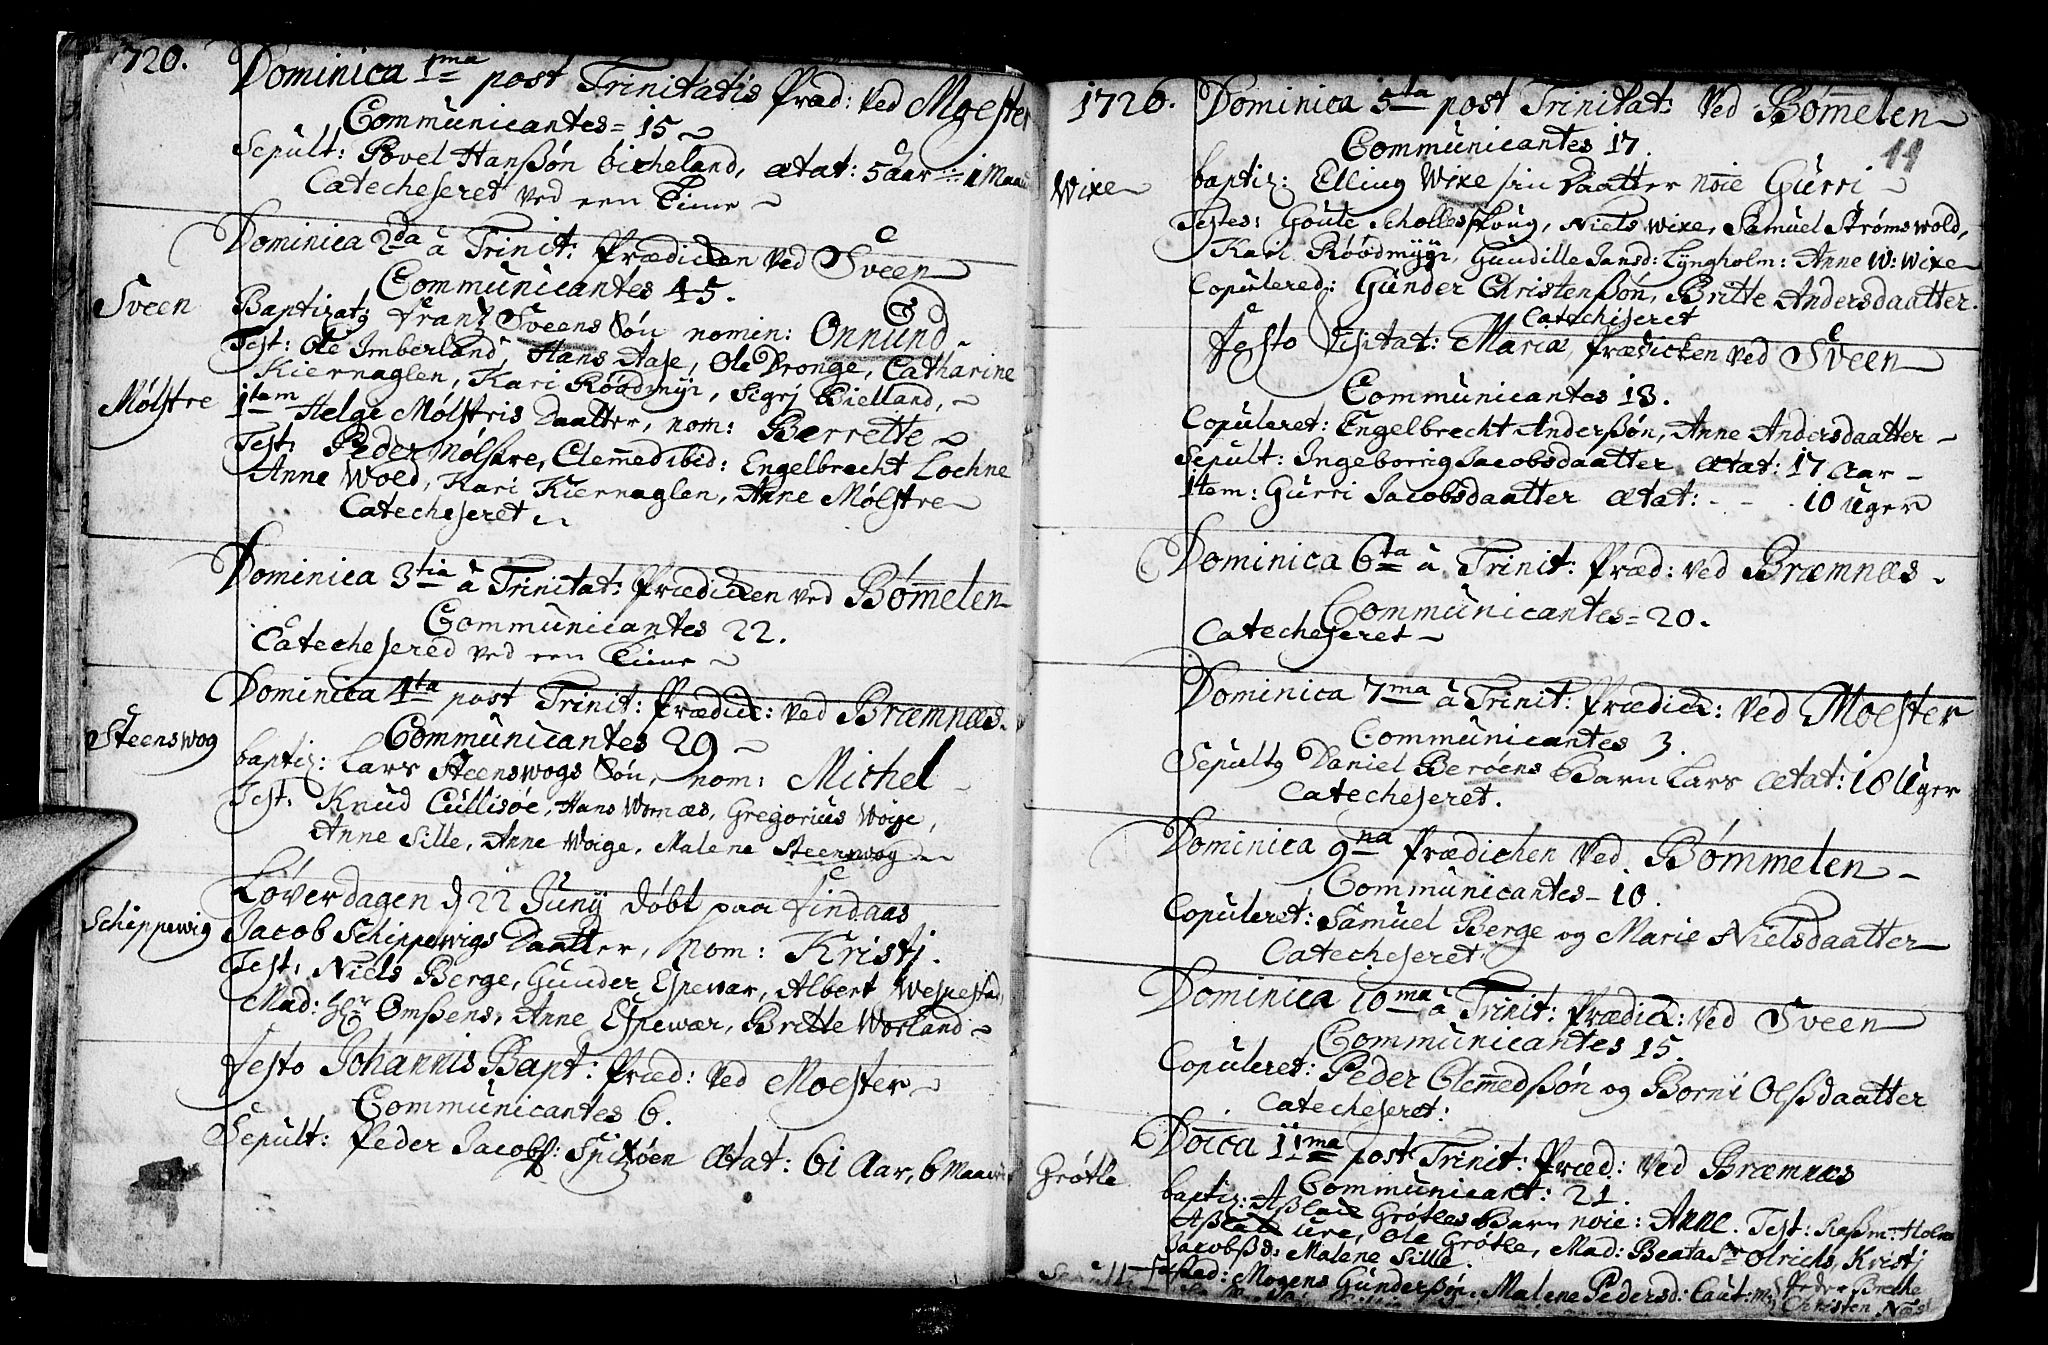 1720.
Dominica 1ma post Trinitatis Præd: ved Moester
Communicantes = 15
Sepult: Povel Hanßön Gicheland, ætat: 5 aar 1 Maan
Catecheseret ved een Time
Dominica 2da à Trinit: Prædicken ved Sveen
Communicantes 45.
Sveen
Baptizatg Frantz Sveens Sön nomin: Onnund
Test: Ole Imberland, Hans Aase, Ole Dronge, Catharine
Kiernaglen, Kari Röödmyr, Sigrj Bielland,
Mölstre
Item Helge Mölstris Daatter, nom: Berrette
Test: Peder Mölstre, Clemmed ibid: Engelbrecht Lochne
Anne Wold, Kari Kiernaglen, Anne Mölstre
Catecheseret
Dominica 3tia à Trinitat: Prædicken ved Bömelen
Communicantes 22.
Catechesered ved een Time
Dominica 4ta post Trinit: Prædick: ved Bræmnæs.
Communicantes 29
Steenswog
baptiz: Lars Steenswogs Sön, nom: Michel
Test: Knud Cullisöe, Hans Wornæs, Gregorius Woge,
Anne Sille, Anne Woige, Malene Steenswog
Löverdagen d 22 Juny döbt paa Findaas
Schippewig
Jacob Schippewigs Daatter, Nom: Kristj.
Test: Niels Berge, Gunder Espewar, Albert Wespestad,
Mad: Hr Omßens, Anne Espewær, Britte Worland
Festo Johannis Bapt: Præd: ved Moester
Communicantes 6.
Sepult: Peder Jacobs: Spitzöen Ætat: 61 Aar, 6 Maan
1720.
Dominica 5ta post Trinitat: ved Bömelen
11
Communicantes 17.
Wixe
baptiz: Elling Wixe sin Daatter noie Gurri
Testes: Goute Schollesskoug, Niels Wixe, Samuel Strömswold,
Kari Röödmyr, Gundille Jansd: Lyngholm: Anne W: Wixe
Copulered: Gunder Christenßön, Britte Andersdaatter.
Catechiseret
Festo Visitat: Mariæ, Prædicken ved Sveen
Communicantes 18.
Copuleret: Engelbrecht Anderßön, Anne Andersdaatter
Sepult: Ingeborrig Jacobsdaatter ætat: 17 Aar
Item: Gurri Jacobsdaatter ætat: - - 10 Uger
Dominica 6ta à Trinit: Præd: ved Bræmnæs
Communicantes = 20.
Catecheseret
Dominica 7ma à Trinit: Prædick: ved Moester
Communicantes 3.
Sepultg Daniel Beröens Barn Lars ætat: 18 Uger
Catecheseret.
Dominica 9na Prædichen ved Bömmelen
Communicantes 10.
Copuleret: Samuel Berge og Marie Nielsdaatter
Catecheseret.
Dominica 10ma à Trinit: Prædick: ved Sveen
Communicantes 15.
Copuleret: Peder Clemmedßön og Borni Olßdaatter
Catecheseret:
Doica 11ma post Trinit: Præd: ved Bræmnæs
Communicant: 21.
Grötle
baptiz: Aßlack Grötles Barn noie: Anne. Test: Raßm: Holm
Aßlack Ure, Ole Grötle, Mad: Beata Sr Olrichs, Kristj
Jacobßd: Malene Sille.
Mogens Gunderßön, Malene Pedersd: Caut: Peder Brethe
Christen Næs